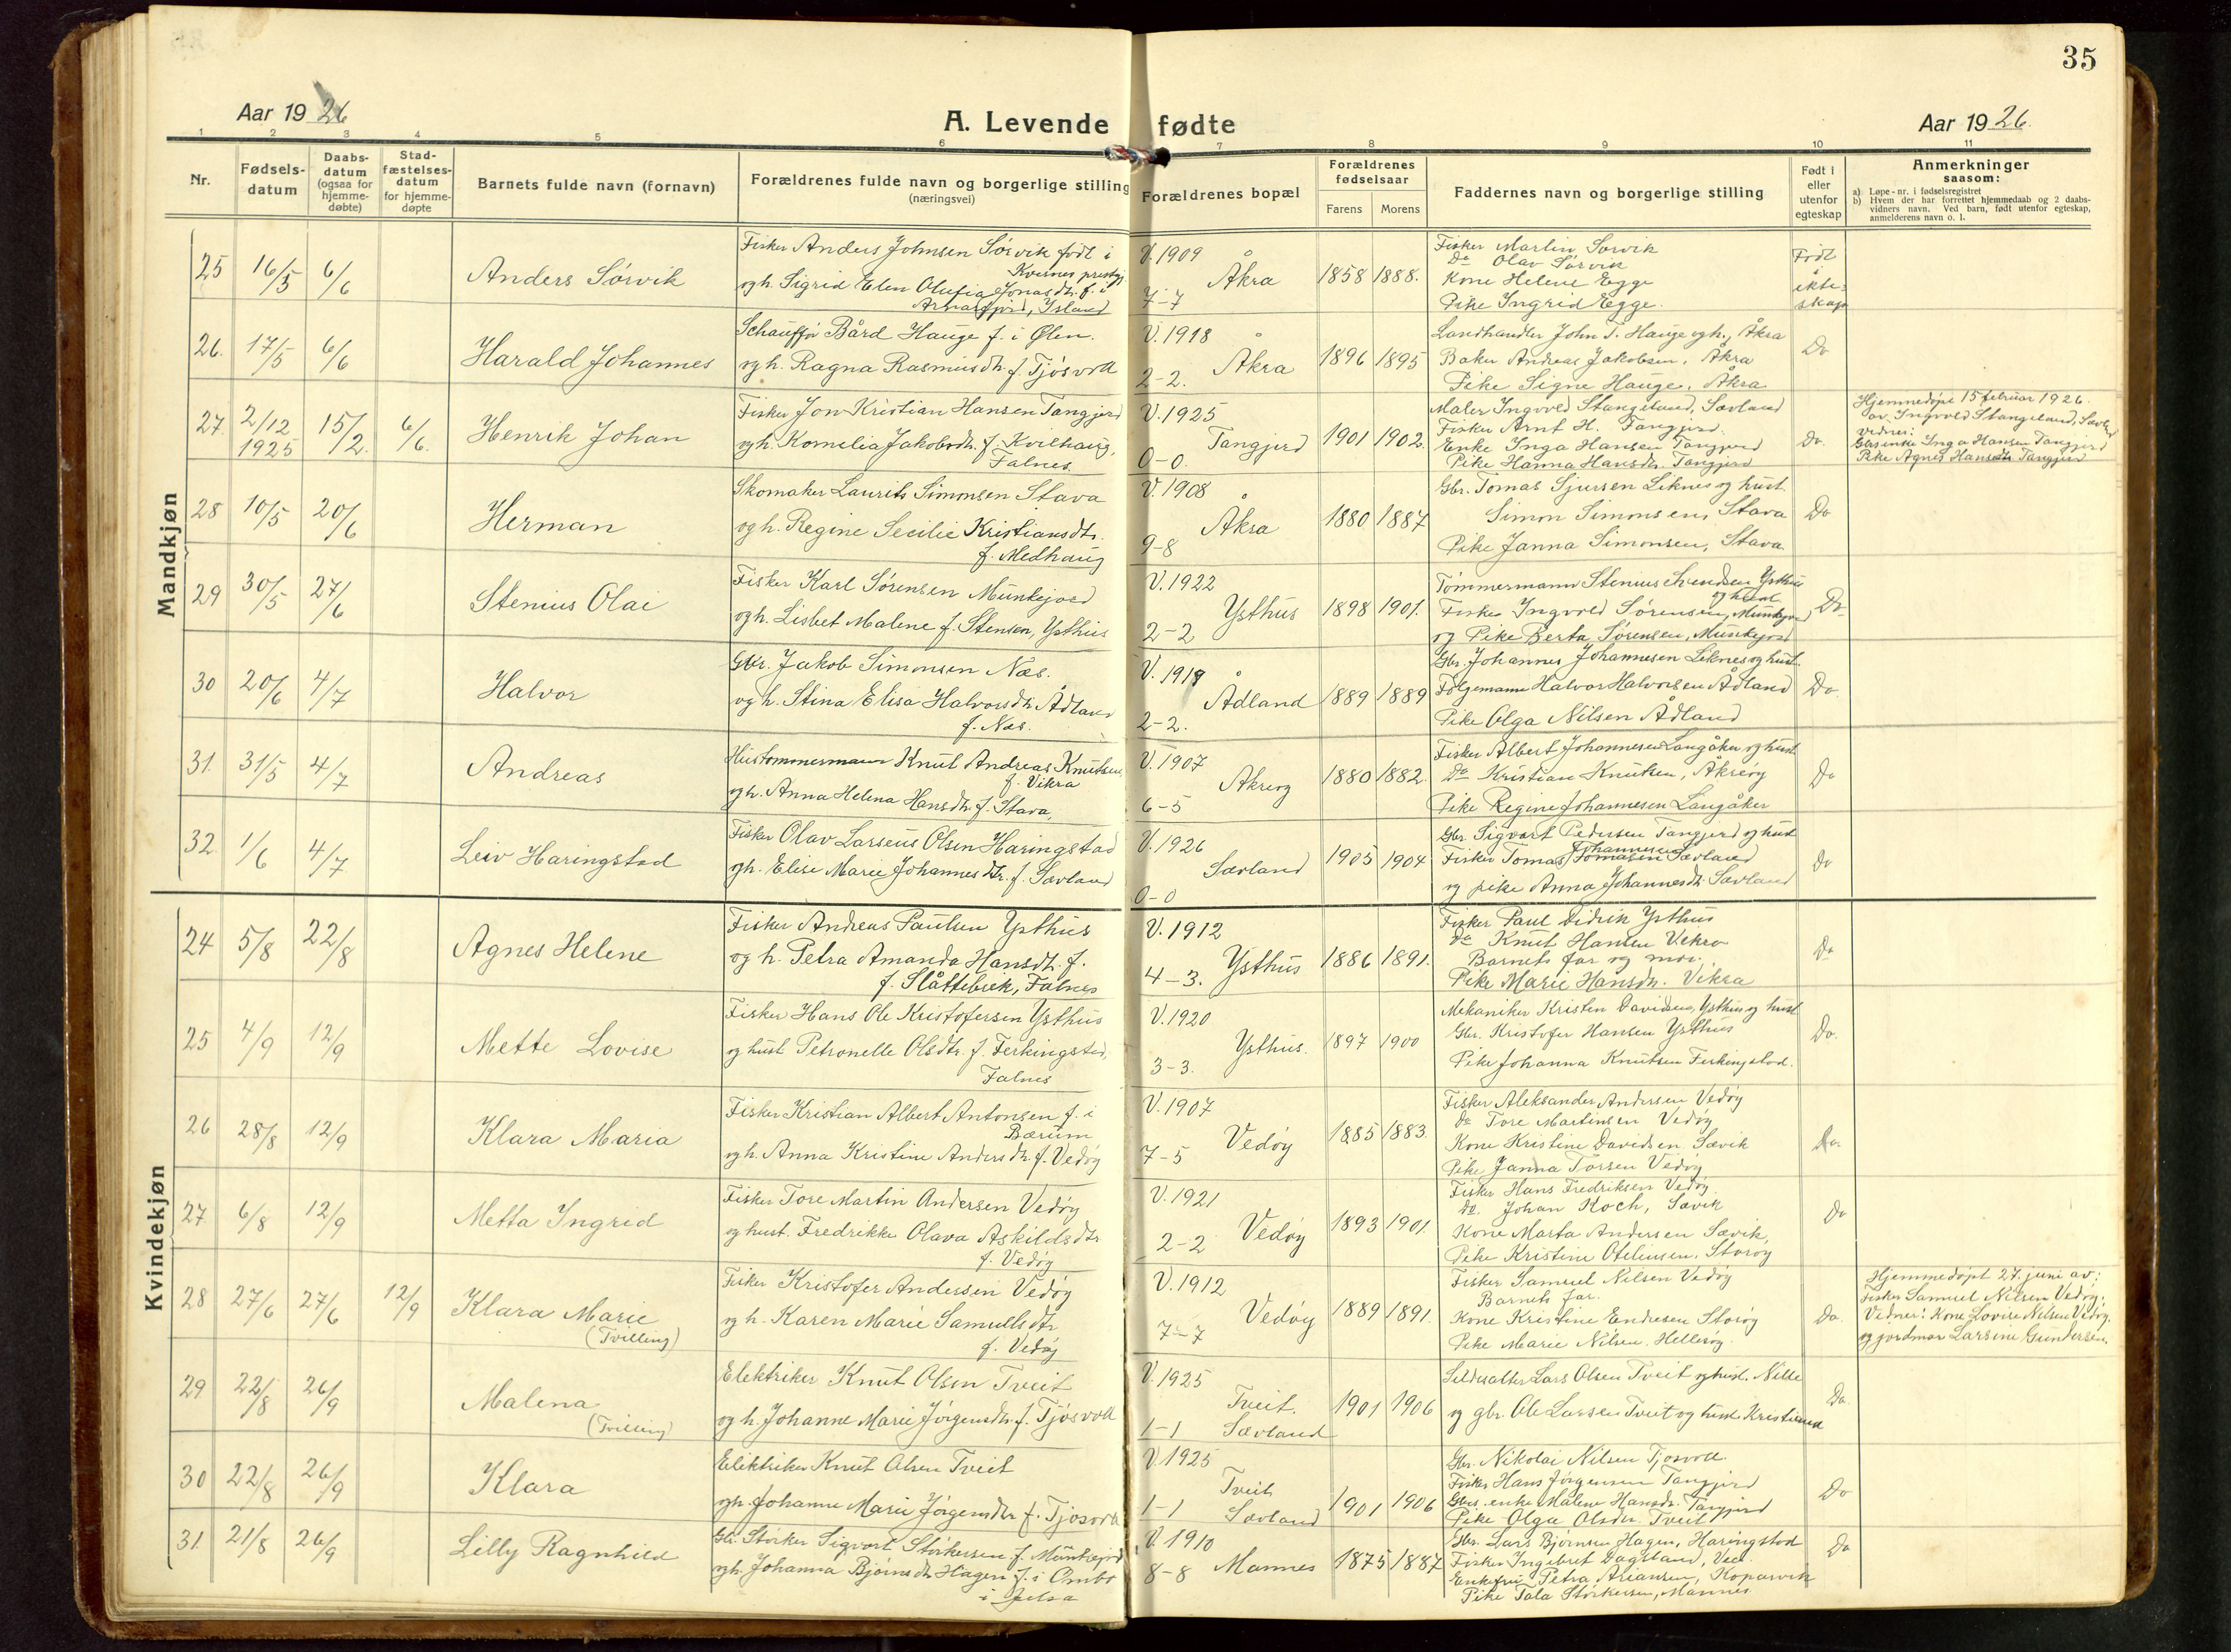 35
Aar 1926
A. Levende fødte
Aar 1926.
1 2 3 4 5 6 7 8 9 10 11
Nr.
Fødselsdatum
Daabsdatum (ogsaa for hjemmedøbte)
Stadfæstelsesdatum for hjemmedøpte
Barnets fulde navn (fornavn)
Forældrenes fulde navn og borgerlige stilling (næringsvei)
Forældrenes bopæl
Forældrenes fødselsaar
Farens Morens
Faddernes navn og borgerlige stilling
Født i eller utenfor egteskap
Anmerkninger saasom:
a) Løpe-nr. i fødselsregistret
b) Hvem der har forrettet hjemmedaab og 2 daabsvidners navn. Ved barn, født utenfor egteskap, anmelderens navn o. l.
Mandkjøn
25 16/5 6/6 Anders Sørvik
Fisker Anders Johnsen Sørvik født i
Kvernes prestgj.
og h. Sigrid Elen Olufia Jonasdtr. f. i
Arnarfjord, Island
V. 1909
7-7 Åkra 1858 1888.
Fisker Martin Sørvik
Do Olav Sørvik
Kone Helene Egge
Pike Ingrid Egge.
Født i ekteskap
26. 17/5 6/6 Harald Johannes
Schauffør Bård Hauge f. i Ølen.
og h. Ragna Rasmusdtr. f. Tjøsvoll
V. 1918
2-2. Åkra 1896 1895
Landhandler John T. Hauge og h., Åkra
Baker Andreas Jakobsen, Åkra
Pike Signe Hauge, Åkra
Do
27. 2/12 1925 15/2. 6/6. Henrik Johan
Fisker Jon Kristian Hansen Tangjerd
og h. Kornelia Jakobsdtr. f. Kvilhaug,
Falnes
V. 1925
0-0. Tangjerd 1901 1902.
Maler Ingvold Stangeland, Sævland
Fisker Arnt H. Tangjerd.
Enke Inga Hansen Tangjerd
Pike Hanna Hansdtr. Tangjerd
Do.
Hjemmedøpt 15 februar 1926.
av Ingvold Stangeland, Sævland
vidner:
Gbrsenke Inga Hansen Tangjerd
Pike Agnes Hansdtr Tangjerd
28 10/5 20/6 Herman
Skomaker Laurits Simonsen Stava
og h. Regine Secilie Kristiansdtr.
f. Medhaug
V. 1908
9-8 Åkra 1880 1887
Gbr. Tomas Sjursen Liknes og hust.
Simon Simonsen, Stava
Pike Janna Simonsen, Stava.
Do
29 30/5 27/6 Stenius Olai
Fisker Karl Sørensen Munkejord
og h. Lisbet Malene f. Stensen, Ysthus
V. 1922
2-2 Ysthus 1898 1901.
Tømmermann Stenius Ysthus
og hust.
Fisker Ingvold Sørensen, Munkejord
og Pike Berta Sørensen, Munkejord
Do
30 20/6 4/7 Halvor
Gbr. Jakob Simonsen Næs.
og h. Stina Elisa Halvorsdtr. Ådland
f. Næs.
V. 1919
2-2. Ådland 1889 1889
Gbr. Johannes Johannesen Liknes og hust.
Følgemann Halvor Halvorsen Ådland
Pike Olga Nilsen Ådland
Do.
31. 31/5 4/7 Andreas
Hustommermann Knut Andreas Knutsen,
f. Vikra
og h. Anna Helena Hansdtr. f. Stava,
V. 1907
6-5 Åkreøy 1880 1882.
Fisker Albert Johannesen Langåker og hust.
Do Kristian Knutsen, Åkreøy
Pike Regine Johannesen Langåker
Do
32. 1/6 4/7 Leiv Haringstad
Fisker Olav Larseus Olsen Haringstad
og h. Elise Marie Johannesdtr. f. Sævland
V. 1926
0-0 Sævland 1905 1904
Gbr. Sigvart Pedersen Tangjerd og hust
Johannesen
Fisker Tomas Tomasen Sævland
og pike Anna Johannesdtr. Sævland
Do
Kvindekjøn
24 5/8 22/8 Agnes Helene
Fisker Andreas Paulsen Ysthus
og h. Petra Amanda Hansdtr. f.
f. Slåttebrek, Falnes
V. 1912
4-3. Ysthus 1886 1891.
Fisker Paul Didrik Ysthus
do Knut Hansen Vekra
Barnets far og mor.
Pike Marie Hansdtr. Vikra
Do
25 4/9 12/9 Mette Lovise
Fisker Hans Ole Kristofersen Ysthus
og hust Petronelle Olsdtr. f. Ferkingstad,
Falnes
V. 1920
3-3. Ysthus. 1897 1900
Mekaniker Kristen Davidsen, Ysthus og hust
Gbr. Kristofer Hansen Ysthus
Pike Johanna Knutsen Ferkingstad.
Do.
26 28/8 12/9 Klara Maria
Fisker Kristian Albert Antonsen f. i
Bærum
og h. Anna Kristine Andersdtr. f. Vedøy
V. 1907
7-5 Vedøy 1885 1883.
Fisker Aleksander Andersen Vedøy
do Tore Martinsen Vedøy
Kone Kristine Davidsen Sævik
Pike Janna Torsen Vedøy
Do.
27 6/8 12/9 Metta Ingrid
Fisker Tore Martin Andersen Vedøy
og hust. Fredrikke Olava Askildsdtr
f. Vedøy
V. 1921
2-2 Vedøy 1893 1901.
Fisker Hans Fredriksen Vedøy.
do. Johan Koch, Sævik
Kone Marta Andersen Sævik,
Pike Kristine Otelinsen, Storøy
Do
28 27/6 27/6 12/9 Klara Marie
(Tvilling)
Fisker Kristofer Andersen Vedøy
og h. Karen Marie Samuelsdtr
f. Vedøy
V. 1912
7-7 Vedøy 1889 1891.
Fisker Samuel Nilsen Vedøy
Barnets far.
Kone Kristine Endresen Storøy
Pike Marie Nilsen, Hellesøy.
Do.
Hjemmedøpt 27. juni av:
Fisker Samuel Nilsen Vedøy.
Vidner: Kone Lovise Nilsen Vedøy.
og jordmor Larsine Gundersen.
29 22/8 26/9 Malena
(Tvilling)
Elektriker Knut Olsen Tveit
og h. Johanne Marie Jørgensdtr. f. Tjøsvoll
V. 1925
1-1 Tveit. Sævland 1901 1906
Sildesalter Lars Olsen Tveit og hust. Nille
og gbr. Ole Larsen Tveit og hust. Kristianna
Do.
30 22/8 26/9 Klara
Elektriker Knut Olsen Tveit
og h. Johanne Marie Jørgensdtr f. Tjøsvoll
V. 1925
1-1 Tveit Sævland 1901 1906
Gbr. Nikolai Nilsen Tjosvoll
Fisker Hans Jørgensen Tangjerd
Gbrs. enke Malene Hansdtr. Tangjerd
Pike Olga Olsdtr. Tveit
Do
31. 21/8 26/9 Lilly Ragnhild
Gbr. Storker Sigvart Størkersen f. Munkejord
og h. Johanna Bjørnsdtr Hagen f. i Ombo
i Jelsa
V. 1910
8-8 Mannes 1875 1887
Gbr. Lars Bjørnsen Hagen, Haringstad
Fisker Ingebret Dagsland, Vea.
Enkefru Petra Ariansen, Kopervik
Pike Tala Størkersen, Mannes.
Do